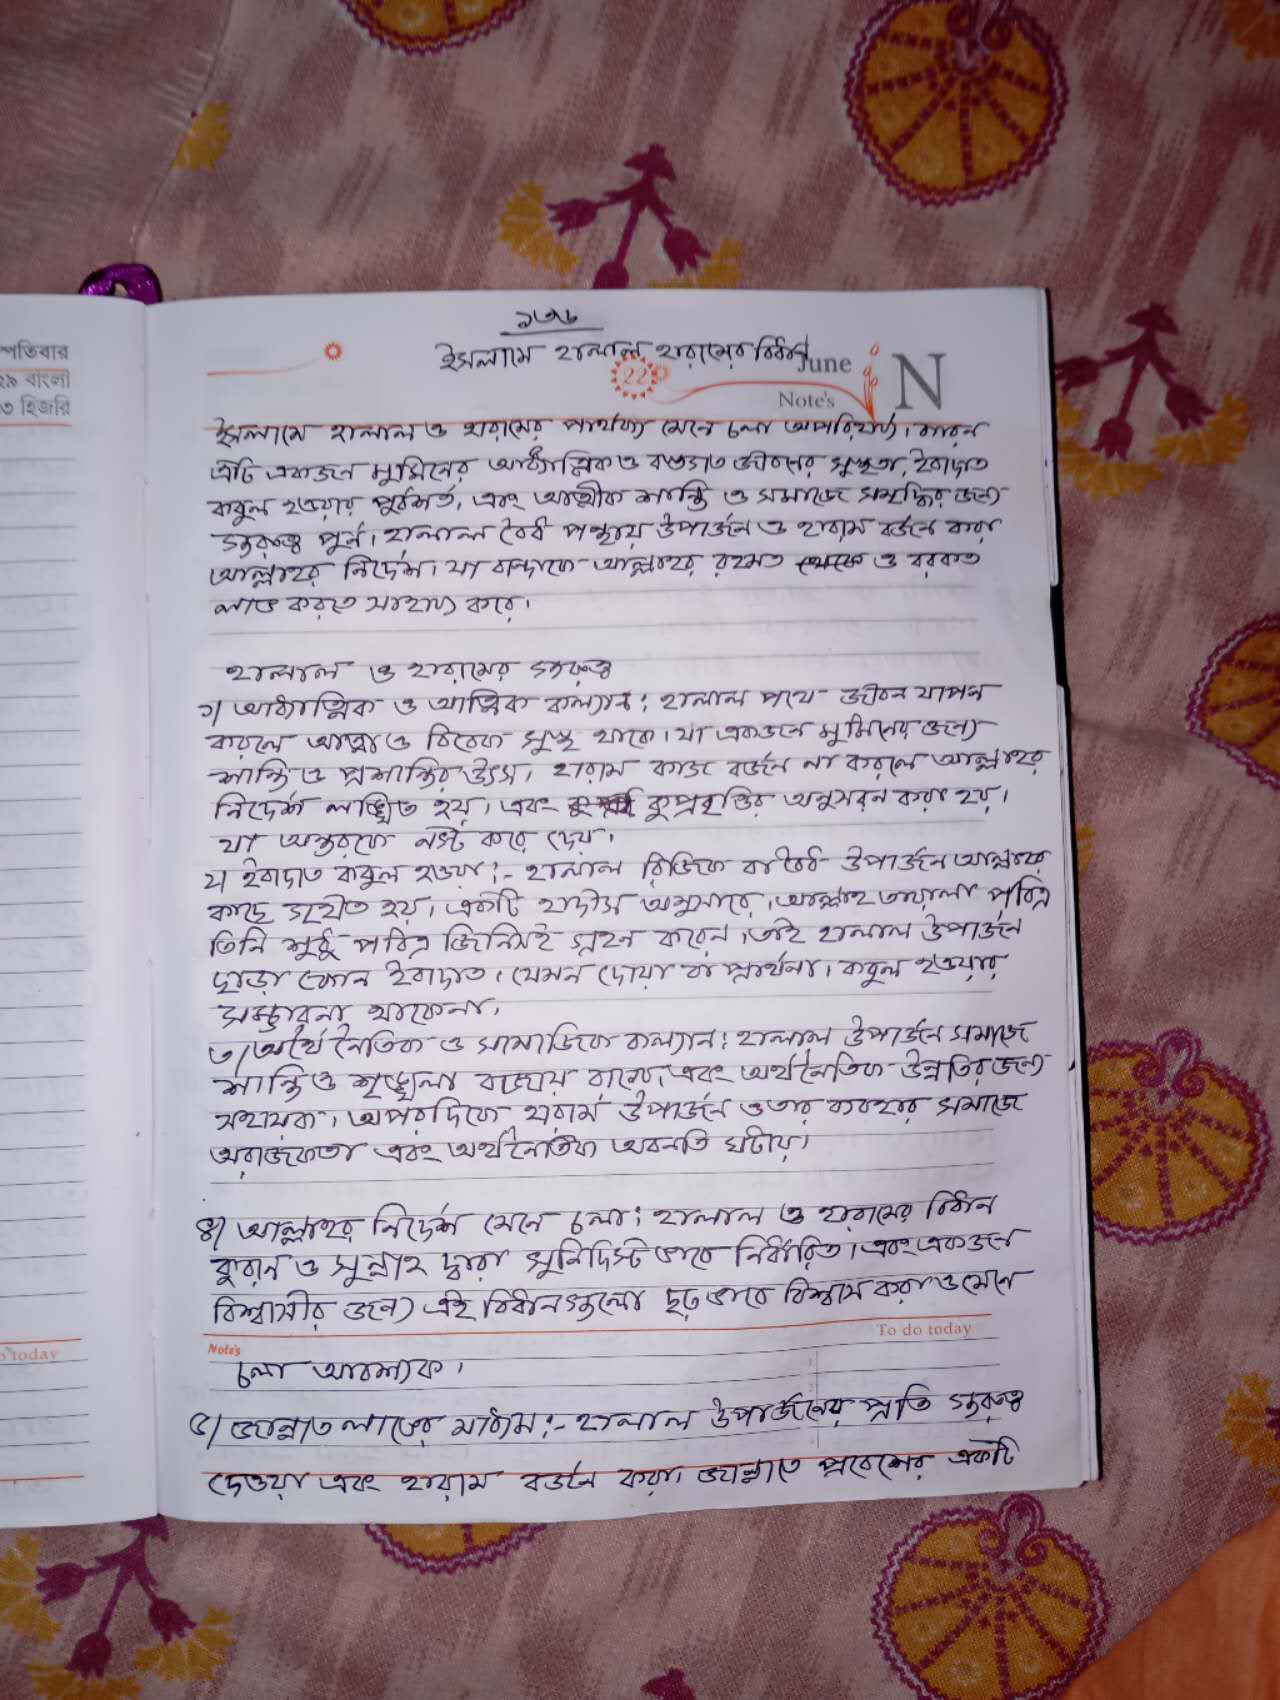 স্পতিবার
২৯ বাংলা
৩ হিজরি
১৩৬
ইসলামে হালাল হারামের বিধান
22 June
Note's
N
ইসলামে হালাল ও হারামের পার্থক্য মেনে চলা অপরিহার্য। কারন
এটি একজন মুমিনের আধ্যাত্নিক ও বস্তুগত জীবনের সুস্থতা, ইবাদাত
কবুল হওয়ার পুর্বশর্ত, এবং আত্মীক শান্তি ও সমাজে সমৃদ্ধির জন্য
গুরুত্ব পুর্ন। হালাল বৈধ পন্থায় উপার্জন ও হারাম বর্জন করা
আল্লাহর নির্দেশ। যা বান্দাকে আল্লাহর রহমত ও বরকত
লাভ করতে সাহায্য করে।
হালাল ও হারামের গুরুত্ব
১| আধ্যাত্মিক ও আত্মিক কল্যান: হালাল পথে জীবন যাপন
করলে আত্মা ও বিবেক সুস্থ থাকে। যা একজন মুমিনের জন্য
শান্তি ও প্রশান্তির উৎস। হারাম কাজ বর্জন না করলে আল্লাহর
নির্দেশ লঙ্ঘিত হয়। এবং কুপ্রবৃত্তির অনুসরন করা হয়।
যা অন্তরকে নস্ট করে দেয়।
২| ইবাদাত কবুল হওয়া:- হালাল রিজিক বা বৈধ উপার্জন আল্লাহর
কাছে গৃহীত হয়। একটি হাদীস অনুসারে। আল্লাহ তায়ালা পবিত্র
তিনি শুধু পবিত্র জিনিসই গ্রহন করেন। তাই হালাল উপার্জন
ছাড়া কোন ইবাদাত। যেমন দোয়া বা প্রার্থনা। কবুল হওয়ার
সম্ভাবনা থাকেনা।
৩| অর্থনৈতিক ও সামাজিক কল্যান: হালাল উপার্জন সমাজে
শান্তি ও শৃঙ্খলা বজায় রাখে, এবং অর্থনৈতিক উন্নতির জন্য
সহায়ক। অপরদিকে হারাম উপার্জন ও তার ব্যবহার সমাজে
অরাজকতা এবং অর্থনৈতিক অবনতি ঘটায়।
৪| আল্লাহর নির্দেশ মেনে চলা: হালাল ও হারামের বিধান
কুরান ও সুন্নাহ দ্বারা সুনিদিস্ট ভাবে নির্ধারিত। এবং একজন
বিশ্বাসীর জন্য এই বিধানগুলো দৃঢ় ভাবে বিশ্বাস করা ও মেনে
To do today
Note's
o today
চলা আবশ্যক।
৫| জান্নাত লাভের মাধ্যম:- হালাল উপার্জনের প্রতি গুরুত্ব
দেওয়া এবং হারাম বর্জন করা। জান্নাতে প্রবেশের একটি